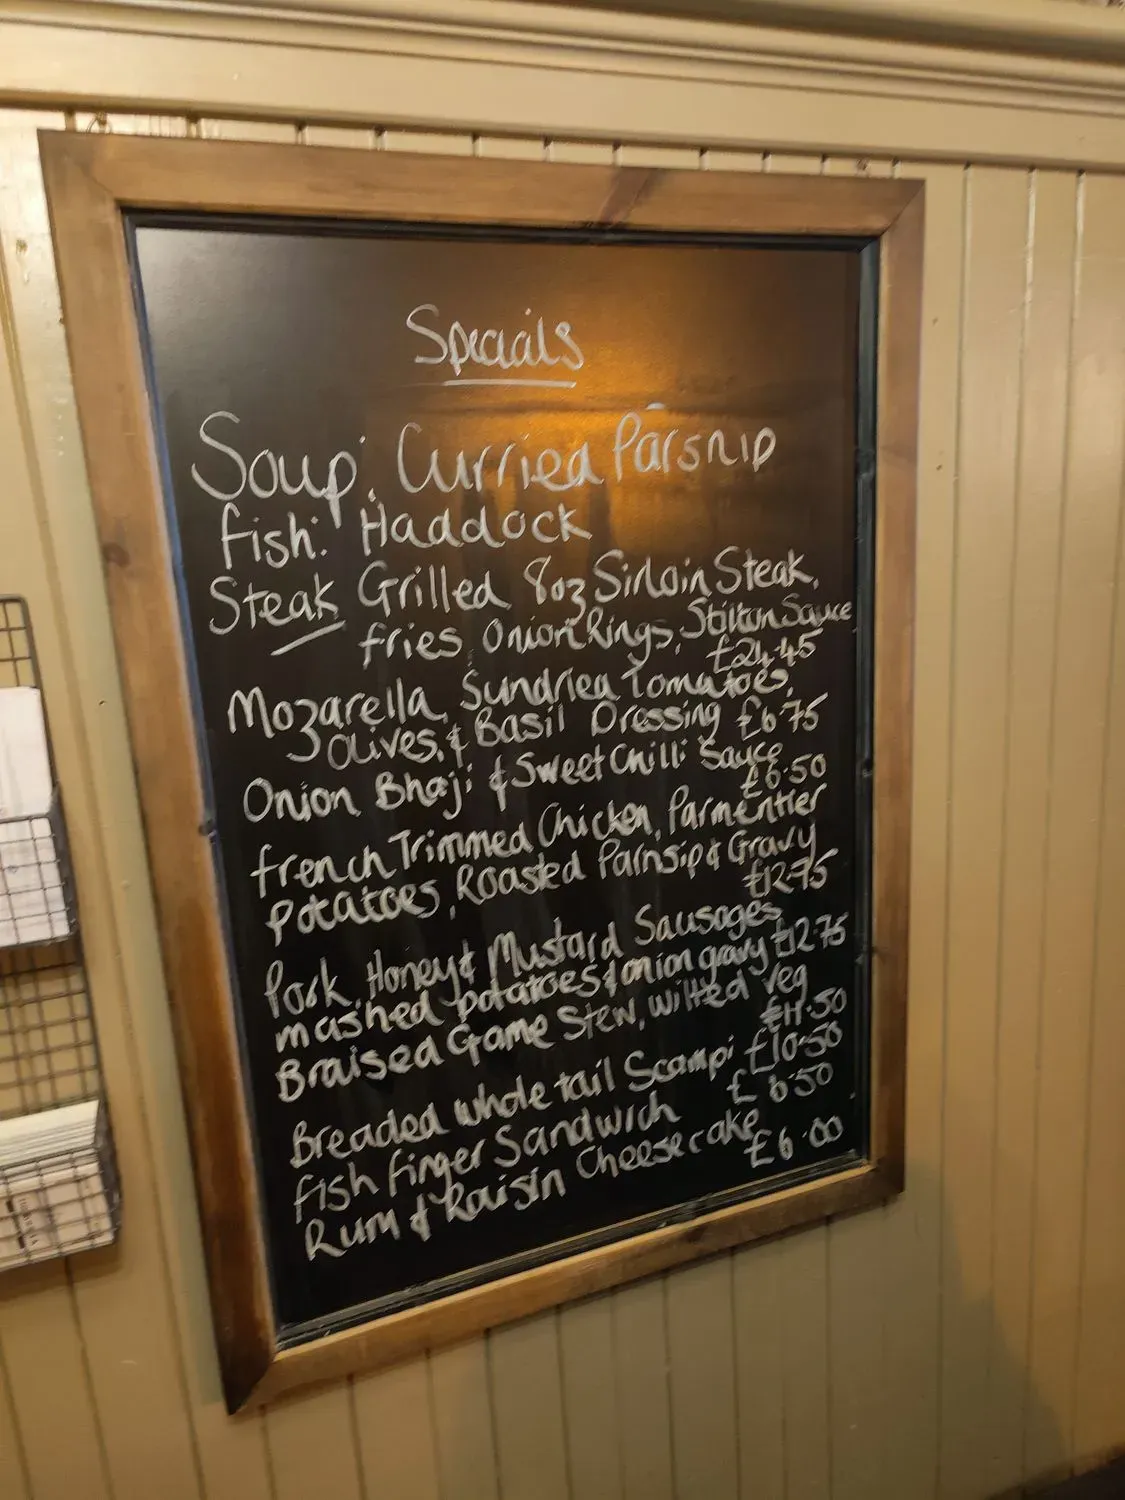 Specials
Soup: Curried Parsnip
Fish: Haddock
Steak Grilled 8oz Sirloin Steak,
Fries, Onion Rings, Stilton Sauce
£24.45
Mozarella, Sundried Tomatoes,
Olives, & Basil Dressing £6.75
Onion Bhaji & Sweet Chilli Sauce
£6.50
French Trimmed Chicken, Parmentier
Potatoes, Roasted Parnsip & Gravy
£12.75
Pork, Honey & Mustard Sausages
mashed potatoes & onion gravy £12.75
Braised Game Stew, wilted veg
£11.50
Breaded whole tail Scampi £10.50
Fish Finger Sandwich £6.50
Rum & Raisin Cheesecake
£6.00